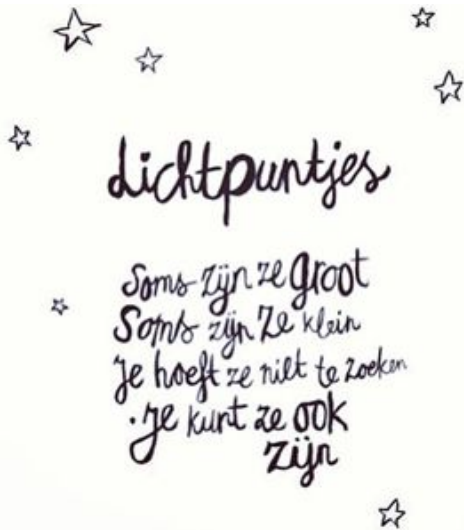 Lichtpuntjes
Soms zijn ze groot
Soms zijn ze klein
Je hoeft ze niet te zoeken
. Je kunt ze ook
zijn